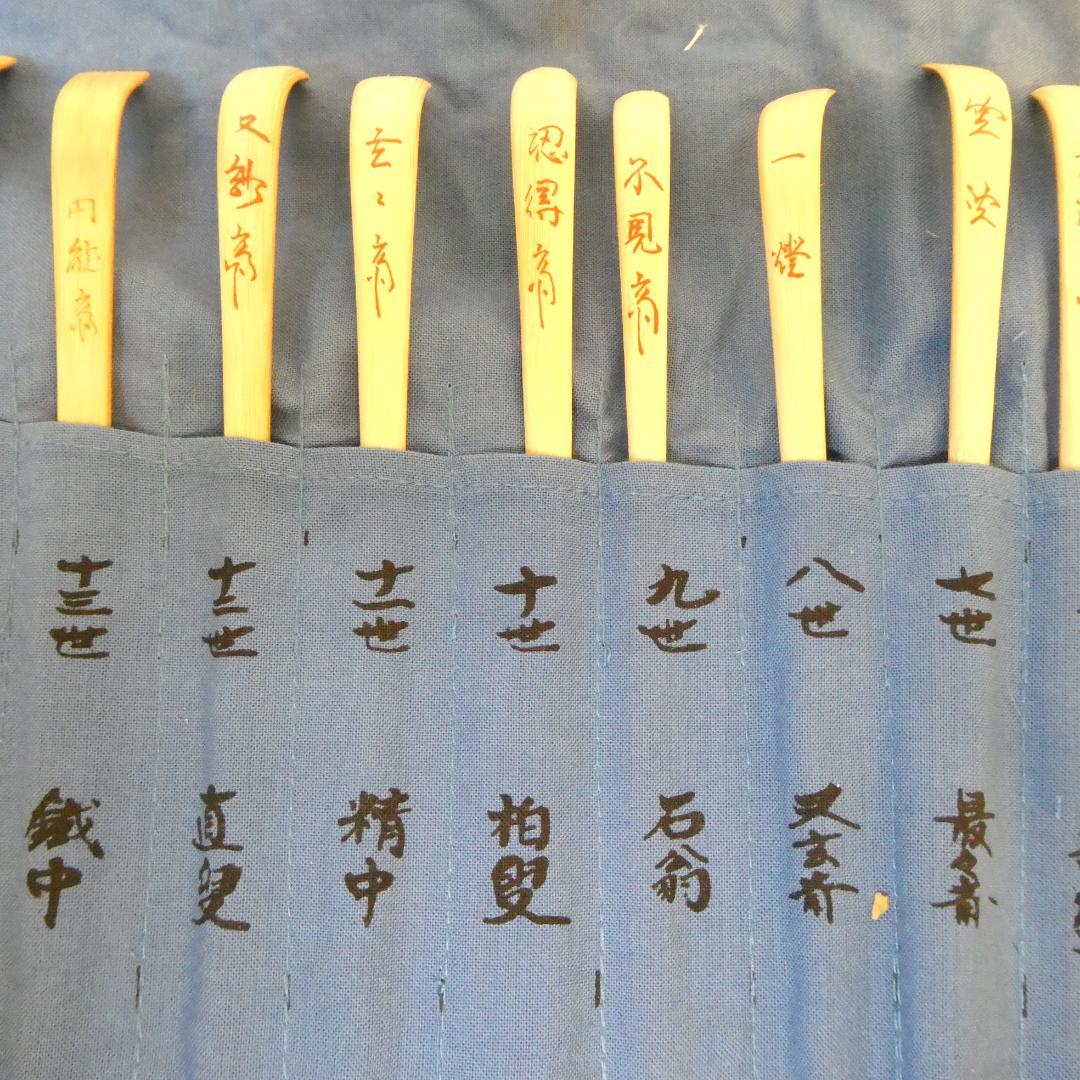 竺叟
七世
最々斎
一燈
八世
又玄斎
不見斎
九世
石翁
認得斎
十世
柏叟
玄々斎
十一世
精中
又玅斎
十二世
直叟
円能斎
十三世
鉄中